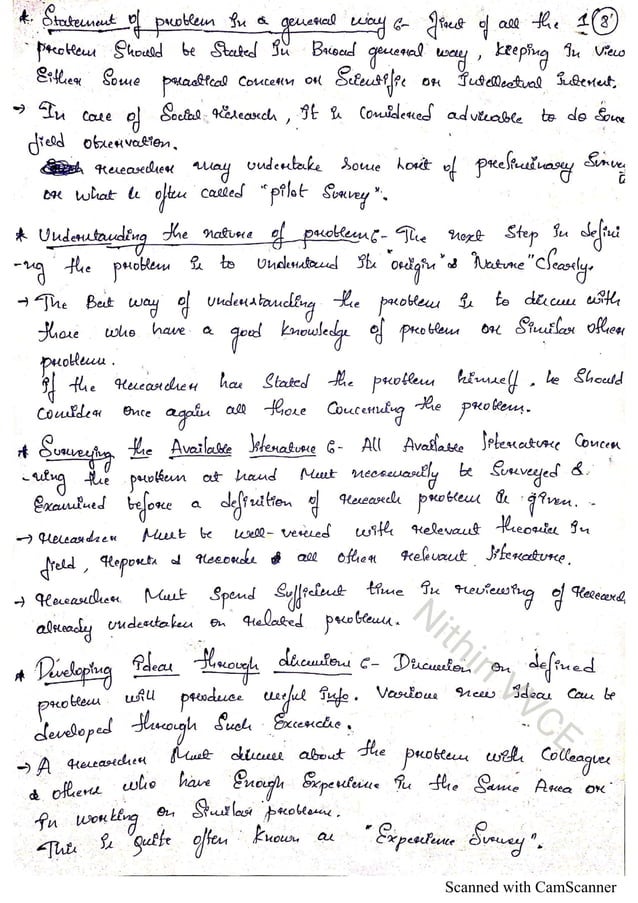 * Statement of problem in a general way :- First of all the 1(8)
problem should be stated in Broad general way, keeping in view
Either some practical concern or Scientific or Intellectual Interest.
→ In case of Social research, it is considered advisable to do some
field observation.
researcher may undertake some sort of preliminary survey
or what is often called "pilot survey".
* Understanding the nature of problem :- The next step in defini
-ng the problem is to understand its "origin" & Nature" Clearly.
→ The Best way of understanding the problem is to discuss with
those who have a good knowledge of problem or similar other
problems.
if the researcher has stated the problem himself, he should
consider once again all those concerning the problem.
* Surveying the Available literature :- All Available literature Concer
-ning the problem at hand Must necessarily be Surveyed &
Examined before a definition of research problem is given.
→ researcher Must be well-versed with relevant theories in
field, reports & records & all other relevant literature.
→ researcher Must spend sufficient time in reviewing of research
already undertaken on related problems.
Nithin VVCE
* Developing Ideas through discussions :- Discussion on defined
problem will produce useful info. Various new Ideas can be
developed through such Exercise.
→ A researcher Must discuss about the problem with Colleagues
& others who have Enough Experience in the Same Area or
in working on Similar problems.
This is quite often known as "Experience Survey".
Scanned with CamScanner